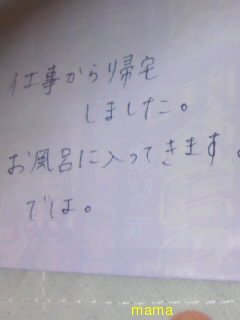 仕事から帰宅
しました。
お風呂に入ってきます。
では。
mama